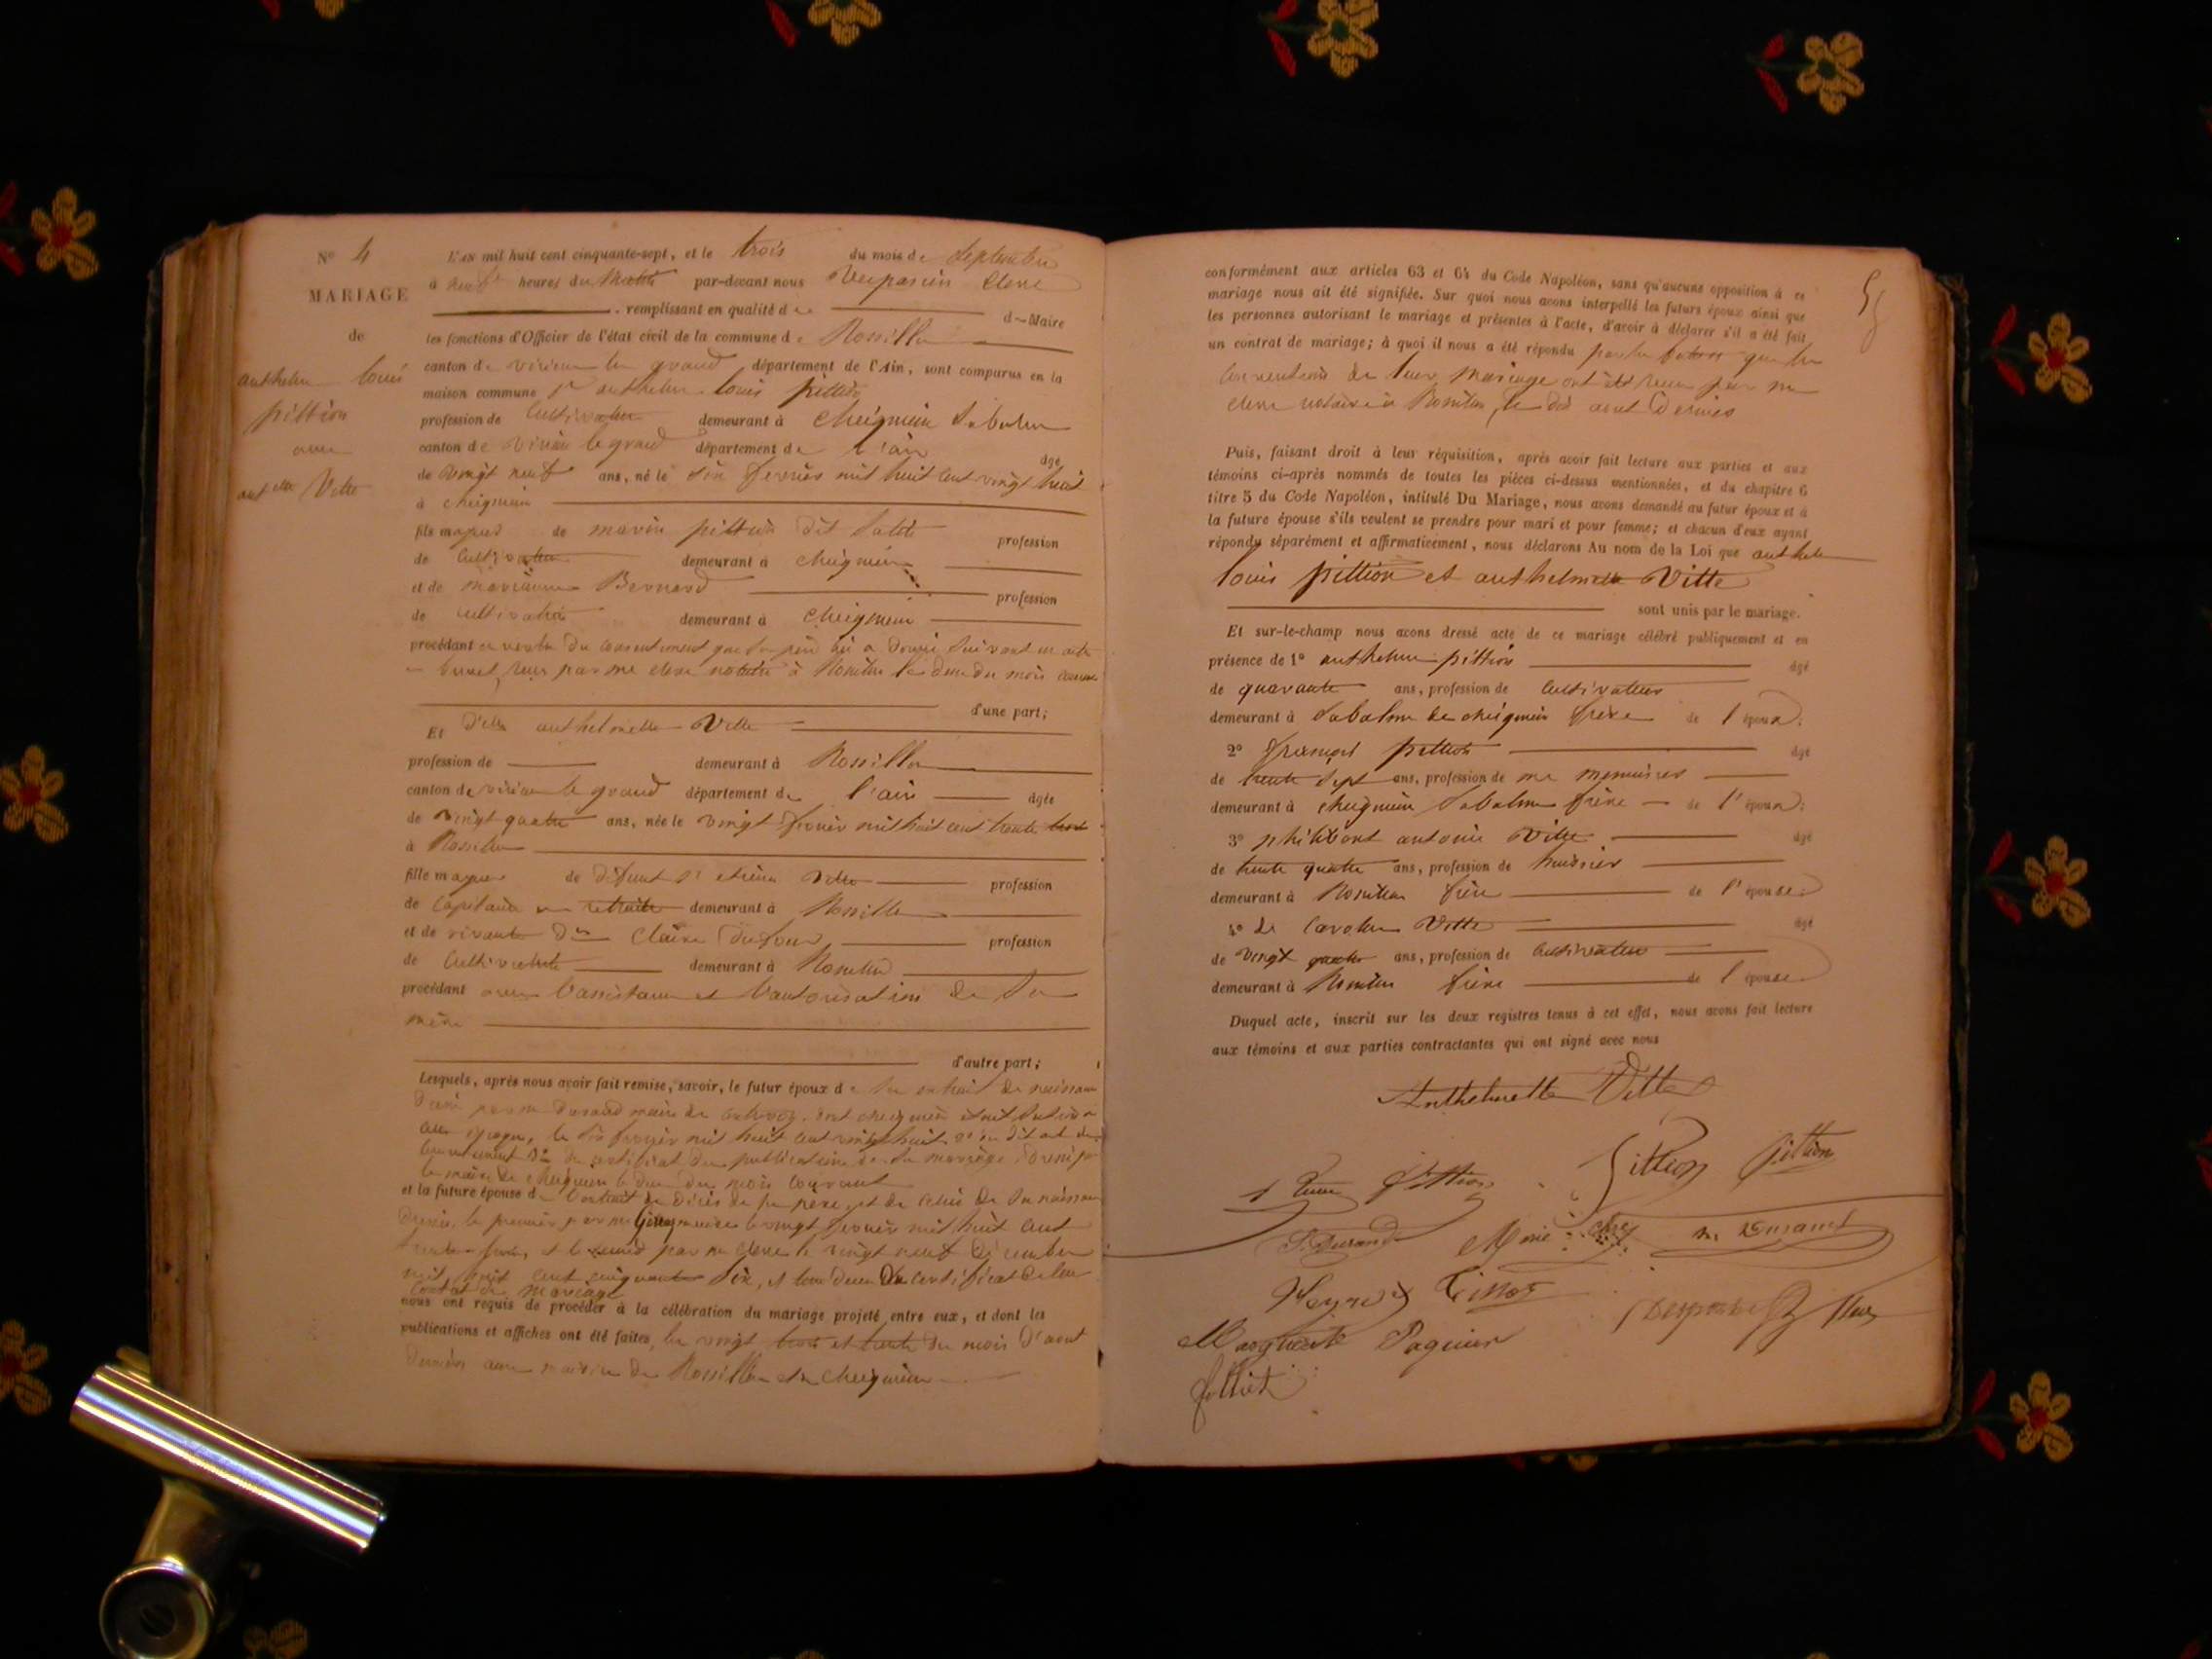 N° 4
MARIAGE
de
anthelme louis
pittion
avec
anth.elle Vitte
L'AN mil huit cent cinquante-sept, et le trois du mois de septembre
à neuf heures du matin par-devant nous Vespasien Clerc
remplissant en qualité de
de Maire
les fonctions d'Officier de l'état civil de la commune de Rossillon
canton de virieu le grand département de l'Ain, sont comparus en la
maison commune Sr anthelme louis pittion
profession de cultivateur demeurant à cheignieu labalme
canton de virieu le grand département de l'ain
âgé
de vingt neuf ans, né le six fevrier mil huit cent vingt huit
à cheignieu
fils majeur de marin pittion dit
profession
de cultivateur demeurant à cheignieu
et de marianne Bernard
profession
de cultivatrice demeurant à cheignieu
procédant en vertu du consentement que son père lui a donné suivant un acte
en brevet, reçu par me clerc notaire à Rossillon le deux du mois courant
d'une part;
Et d'elle anthelmette Vitte
profession de demeurant à Rossillon
canton de virieu le grand département de l'ain âgée
de vingt quatre ans, née le vingt fevrier mil huit cent trente trois
à Rossillon
fille majeure de défunt Sr etienne Vitte profession
de capitaine en retraite demeurant à Rossillon
et de vivante dme Claire Dufour profession
de cultivatrice demeurant à Rossillon
procédant avec l'assistance et l'autorisation de sa
mère
d'autre part;
Lesquels, après nous avoir fait remise, savoir, le futur époux de son extrait de naissance
délivré par me Durand maire de dont cheignieu
époque, le six fevrier mil huit cent vingt huit 2° du dit acte de
consentement 3° du certificat des publications de son mariage
le maire de cheignieu le deux du mois courant
et la future épouse de l'extrait de décès de son père et de celui de sa naissance
le premier par me maire le vingt fevrier mil huit cent
trente trois, et le second par me clerc le vingt neuf décembre
mil huit cent cinquante six, et tous deux du certificat de leur
contrat de mariage
nous ont requis de procéder à la célébration du mariage projeté entre eux, et dont les
publications et affiches ont été faites, les vingt trois et trente du mois d'aout
dernier aux mairies de Rossillon et de cheignieu
conformément aux articles 63 et 64 du Code Napoléon, sans qu'aucune opposition à ce
mariage nous ait été signifiée. Sur quoi nous avons interpellé les futurs époux ainsi que
les personnes autorisant le mariage et présentes à l'acte, d'avoir à déclarer s'il a été fait
un contrat de mariage; à quoi il nous a été répondu par les futurs que les
conventions de leur mariage ont été reçues par me
clerc notaire à Rossillon, le dix aout dernier
Puis, faisant droit à leur réquisition, après avoir fait lecture aux parties et aux
témoins ci-après nommés de toutes les pièces ci-dessus mentionnées, et du chapitre 6
titre 5 du Code Napoléon, intitulé Du Mariage, nous avons demandé au futur époux et à
la future épouse s'ils veulent se prendre pour mari et pour femme; et chacun d'eux ayant
répondu séparément et affirmativement, nous déclarons Au nom de la Loi que anthelme
louis pittion et anthelmette Vitte
sont unis par le mariage.
Et sur-le-champ nous avons dressé acte de ce mariage célébré publiquement et en
présence de 1° anthelme pittion âgé
de quarante ans, profession de cultivateur
demeurant à labalme de cheignieu frère de l'époux;
2° françois pittion âgé
de trente sept ans, profession de me menuisier
demeurant à cheignieu labalme frère de l'époux;
3° philibert antoine Vitte âgé
de trente quatre ans, profession de huissier
demeurant à Rossillon frère de l'épouse;
4° Vitte âgé
de vingt ans, profession de cultivateur
demeurant à Rossillon frère de l'épouse
Duquel acte, inscrit sur les deux registres tenus à cet effet, nous avons fait lecture
aux témoins et aux parties contractantes qui ont signé avec nous
Anthelmette Vitte
Pittion pittion
Pittion
Durand
Tissot
Marguerite Paquier
Jolliet